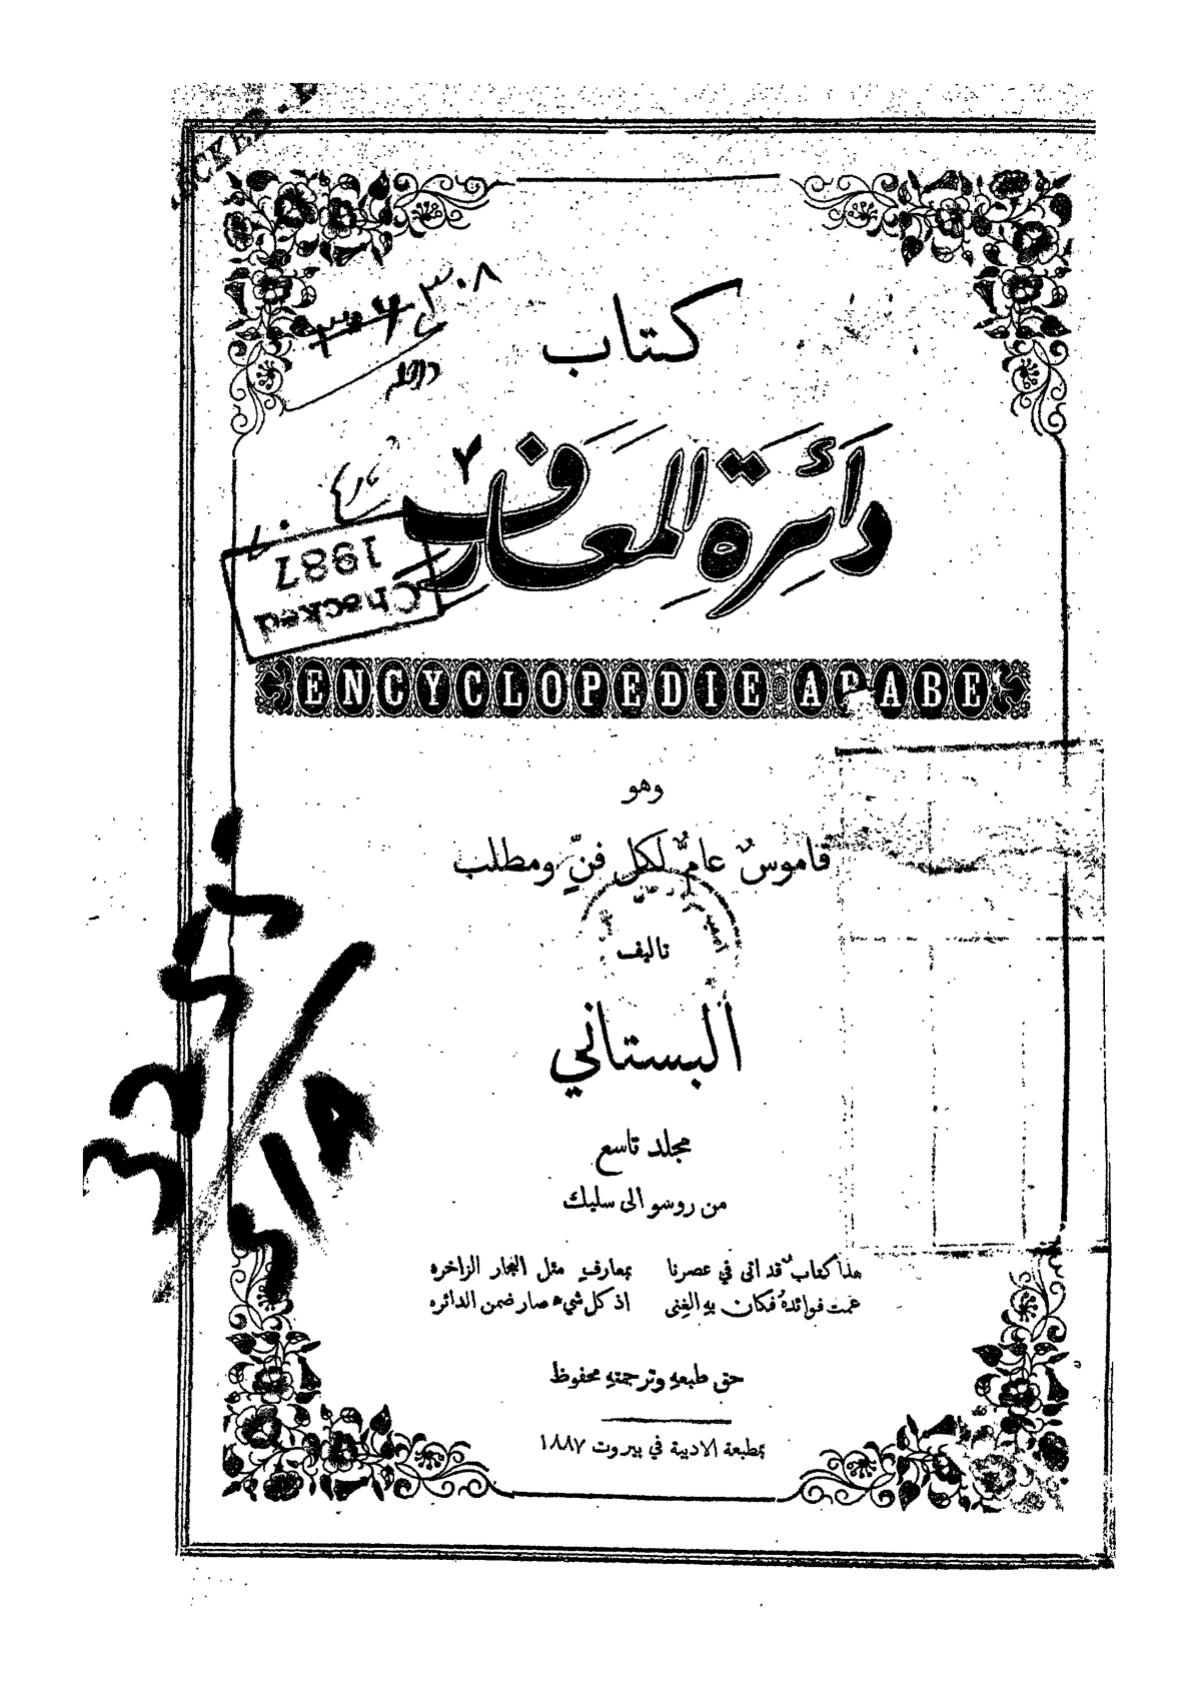 كتاب
دَائِرَة المَعَارِف
ENCYCLOPEDIE ARABE
وهو
قاموسٌ عامٌّ لكل فنٍّ ومطلب
تاليف
البستاني
مجلد تاسع
من روسو الى سليك
هذا كتابٌ قد اتى في عصرنا بمعارفٍ مثل البحار الزاخره
عمت فوائدهُ فكان بهِ الغنى اذ كل شيء صار ضمن الدائره
حق طبعهِ وترجمتهِ محفوظ
بمطبعة الادبية في بيروت ١٨٨٧
٣٠٨
داخله
٧
Checked
1987